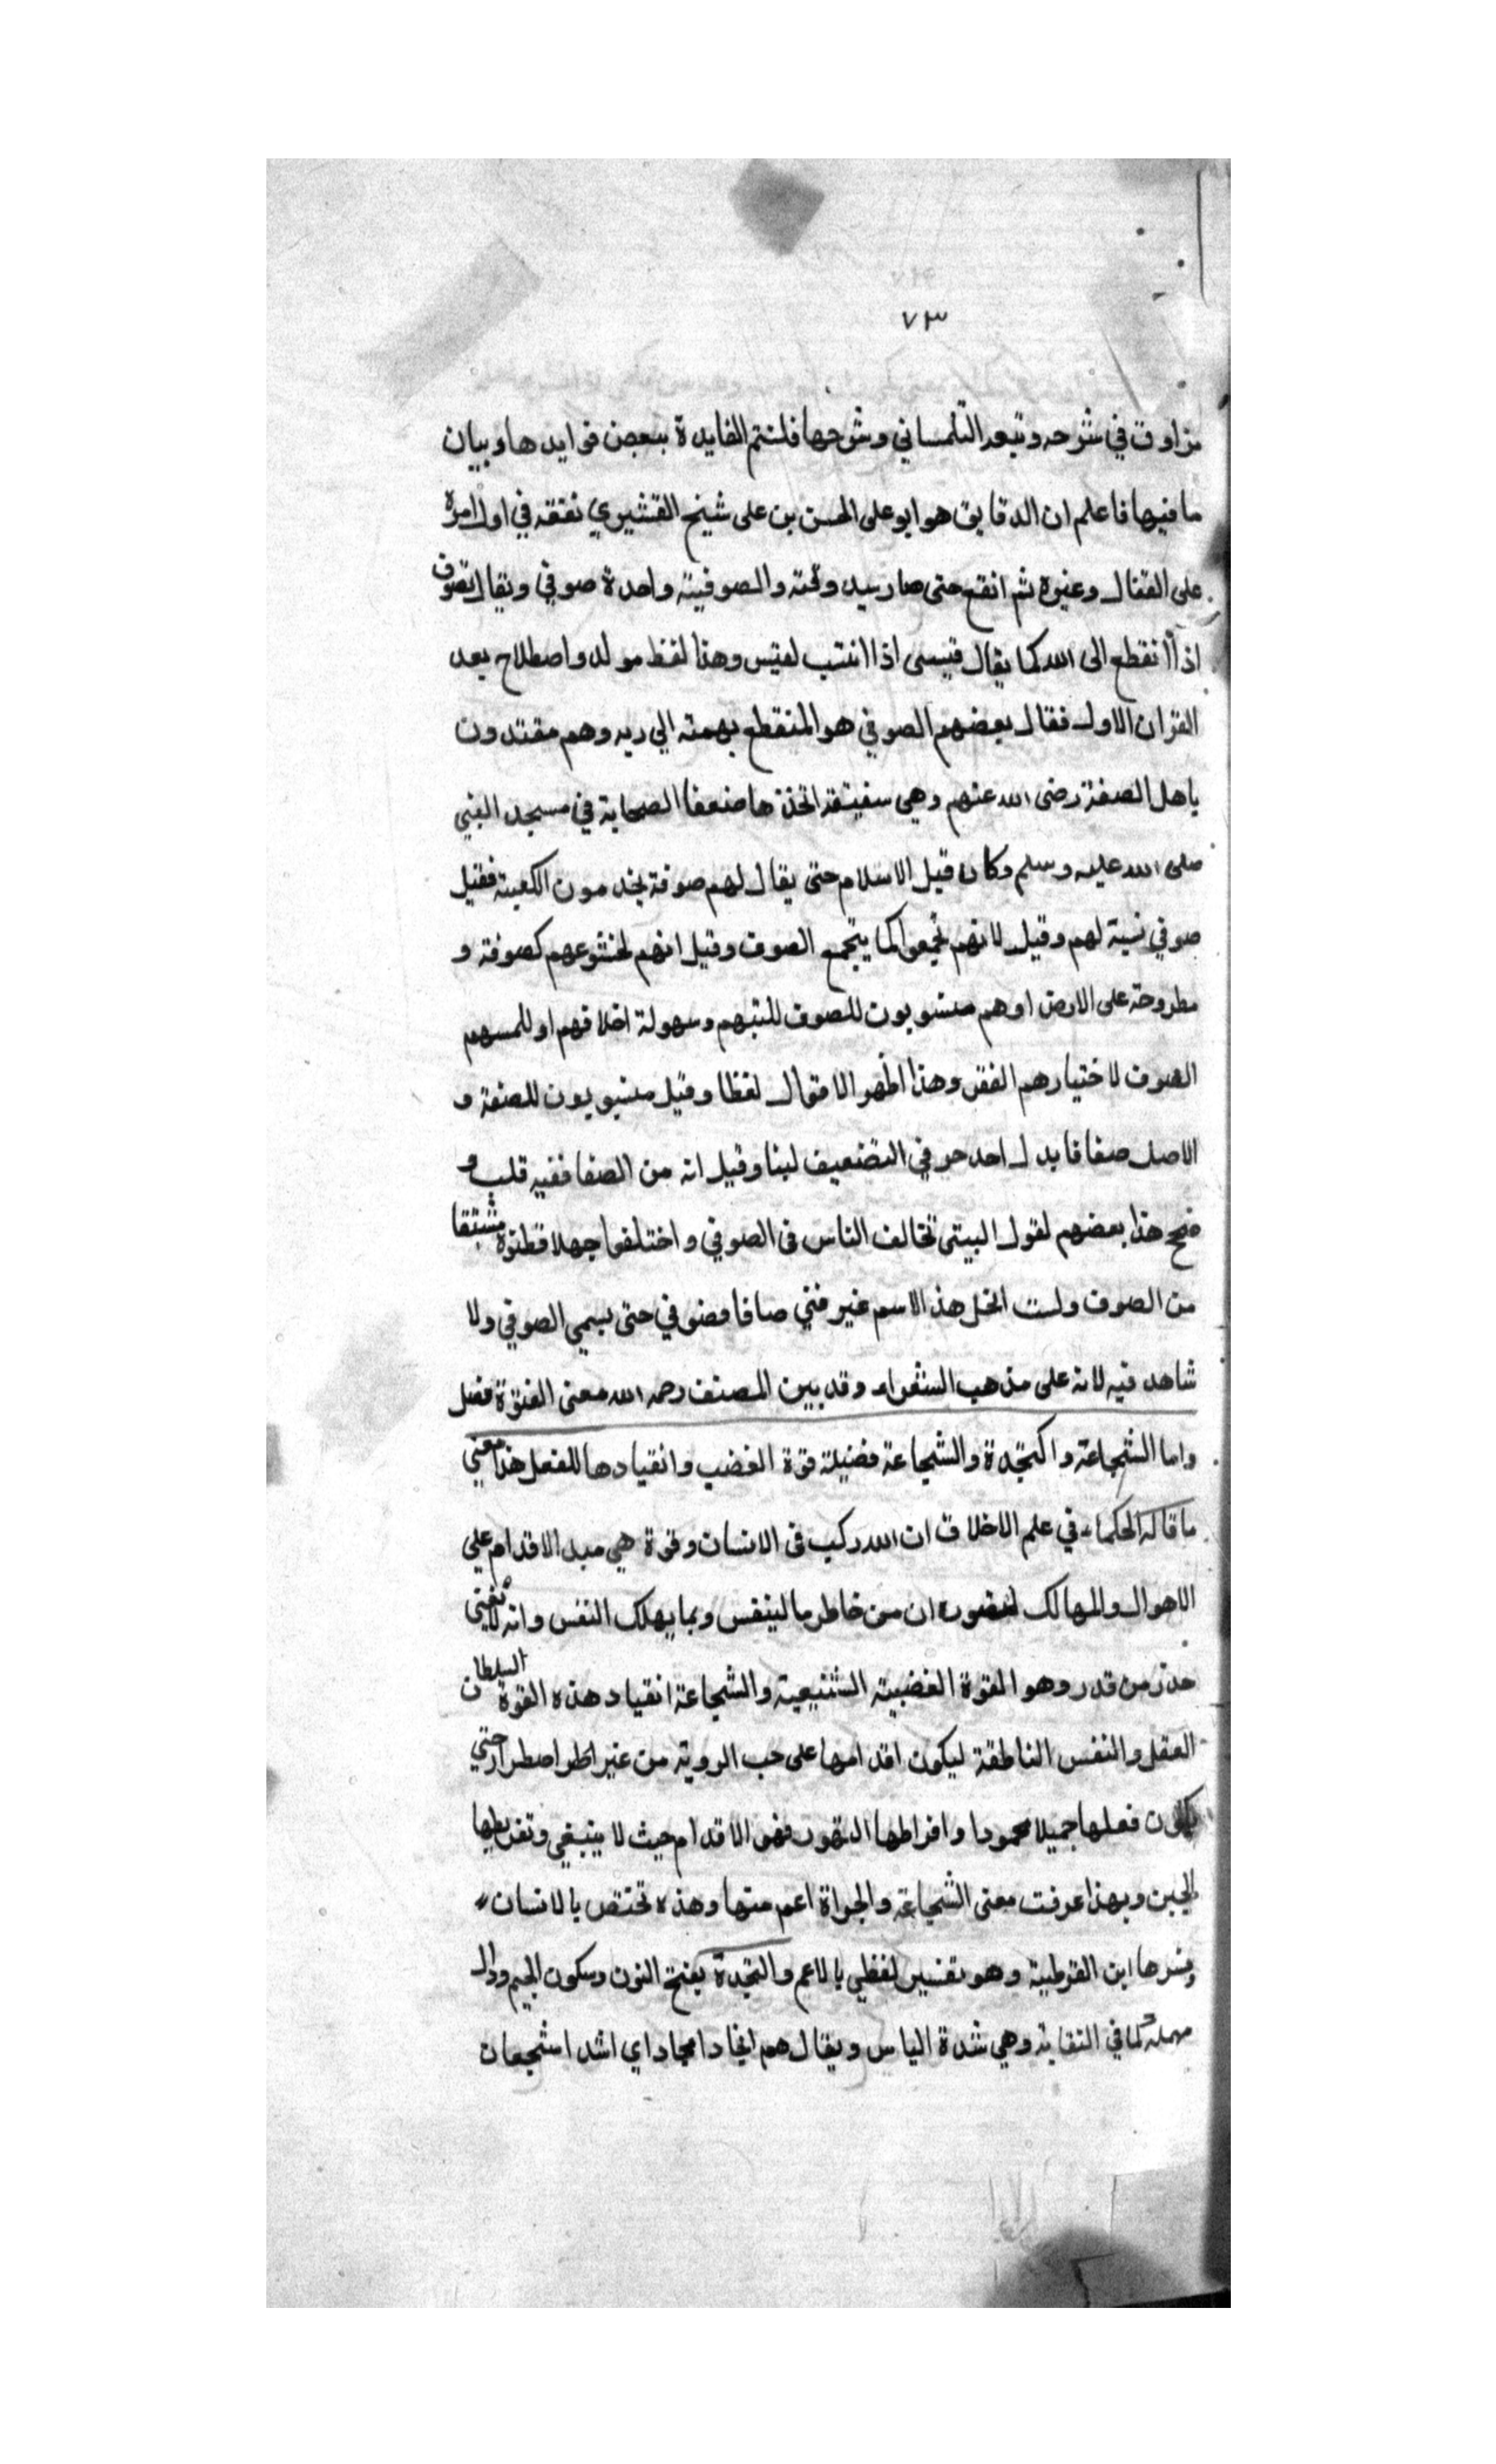 ٧٣
مزاوق في شرحه وتبعه التلمساني وشرحها فلنتم الفايدة ببعض فوايدها وبيان
ما فيها فاعلم ان الدقاق هو ابو على الحسن بن على شيخ القشيري تفقه في اول امره
على القفال وغيره ثم انقع حتى صار سيد وقته والصوفية واحدة صوفي ويقال تصوف
اذا انقطع الى الله كما يقال قيسى اذا انتسب لقيس وهذا لفظ مولد واصطلاح بعد
القران الاول فقال بعضهم الصوفي هو المنقطع بهمته الي ربه وهم مقتدون
باهل الصفة رضى الله عنهم وهي سقيفة اتخذها ضعفا الصحابة في مسجد النبي
صلى الله عليه وسلم وكان قبل الاسلام حتى يقال لهم صوفة يخدمون الكعبة فقيل
صوفي نسبة لهم وقيل لانهم تجمعوا كما يتجمع الصوف وقيل انهم لخشوعهم كصوفة و
مطروحة على الارض او هم منسوبون للصوف للينهم وسهولة اخلاقهم او للبسهم
الصوف لاختيارهم الفقر وهذا اظهر الاقوال لفظا وقيل منسوبون للصفة و
الاصل صفا فابدل احد حر في التضعيف لينا وقيل انه من الصفا ففيه قلب و
ضح هذا بعضهم لقول البيتى تخالف الناس فى الصوفي واختلفوا جهلا فظنوه مشتقا
من الصوف ولست انحل هذ الاسم غير فتي صافا فصوفي حتى يسمي الصوفي ولا
شاهد فيه لانه على مذهب الشعراء وقد بين المصنف رحمه الله معنى الفتوة فصل
واما الشجاعة والنجدة والشجاعة فضيلة قوة الغضب وانقيادها للفعل هذا معني
ما قاله الحكماء في علم الاخلاق ان الله ركب فى الانسان وقوة هي مبد الاقدام على
الاهوال والمهالك ان من خاطر ما لينفس وبما يهلك النفس وانه لا يغني
حذر من قدر وهو القوة الغضبية الشنيعية والشجاعة انقياد هذه القوة السلطان
العقل والنفس الناطقة ليكون اقدامها على حب الروية من غير اضطرار حتي
يكون فعلها جميلا محمودا وافراطها التهور فهو الاقدام حيث لا ينبغي وتفريطها
الجبن وبهذا عرفت معنى الشجاعة والجراة اعم منها وهذه تختص بالانسان
وفسرها ابن القوطية وهو تفسير لفظي بالاعم والنجدة بفتح النون وسكون الجيم ودال
مهملة كما في النقاية وهي شدة الباس ويقال هم انجاد امجاد اي اشد اشجعان